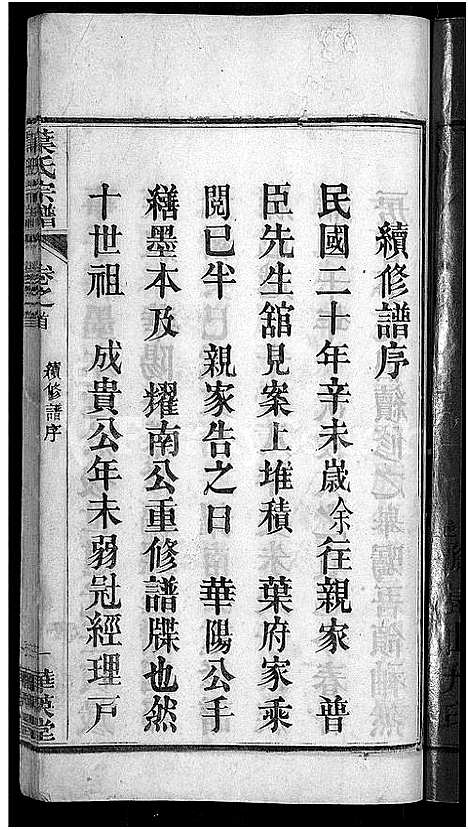 續修譜序
民國二十年辛未歲余往親家　普
臣先生舘見案上堆積　葉府家乘
閱已半　親家告之曰　華陽公手
繕墨本及　耀南公重修譜牒也然
十世祖　成貴公年未弱冠經理戶
葉氏宗譜
卷之首
續修譜序